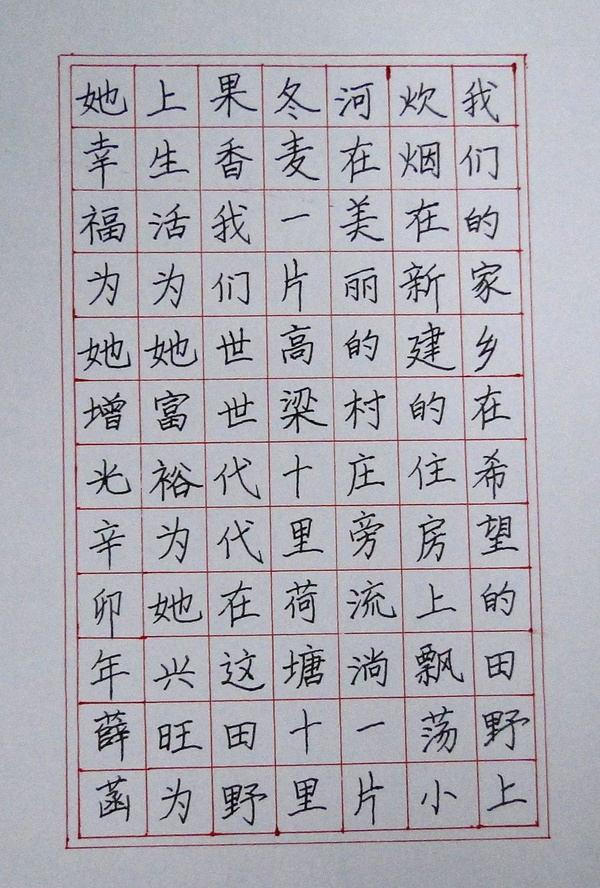 我们的家乡在希望的田野上
炊烟在新建的住房上飘荡小
河在美丽的村庄旁流淌一片
冬麦一片高梁十里荷塘十里
果香我们世世代代在这田野
上生活为她富裕为她兴旺为
她幸福为她增光辛卯年薛菡